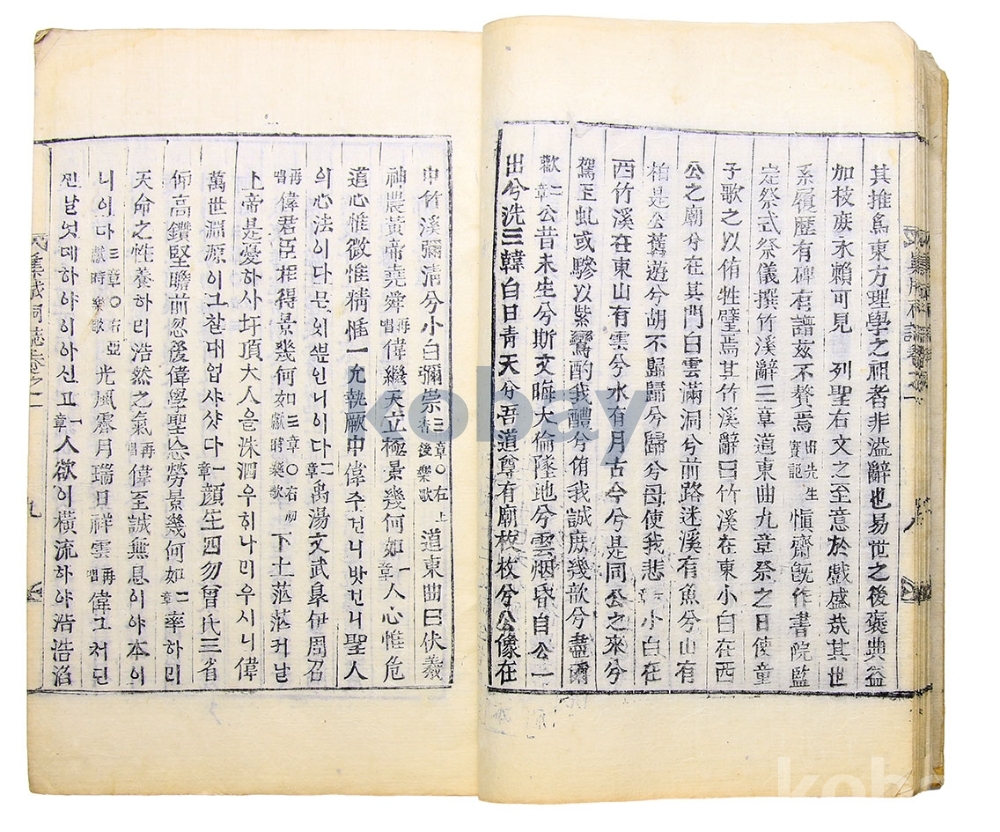 其推爲東方理學之祖者非溢辭也易世之後褒典益
加枝庶永賴可見 列聖右文之至意於戲盛哉其世
系履歷有碑有譜玆不贅焉出先生實記愼齋旣作書院監
定祭式祭儀撰竹溪辭三章道東曲九章祭之日使童
子歌之以侑牲璧焉其竹溪辭曰竹溪在東小白在西
公之廟兮在其門白雲滿洞兮前路迷溪有魚兮山有
柏是公舊遊兮胡不歸歸兮歸兮毋使我悲一章小白在
西竹溪在東山有雲兮水有月古今兮是同公之來兮
駕玉虬或驂以紫鸞酌我醴兮侑我誠庶幾歆兮盡爾
歡二章公昔未生兮斯文晦大倫墜地兮雲烟昏自公一
出兮洗三韓白日靑天兮吾道尊有廟枚枚兮公像在
中竹溪彌淸兮小白彌崇三章○右上香後樂歌道東曲曰伏羲
神農黃帝堯舜再唱偉繼天立極景幾何如一章人心惟危
道心惟微惟精惟一允執厥中偉주거니밧거니聖人
의心法이다믄잇뿐인니이다二章禹湯文武皐伊周召
再唱偉君臣相得景幾何如三章○右初獻時樂歌下土茫茫커날
上帝是憂하사圩頂大人을洙泗우희나리우시니偉
萬世淵源이그찰대업샤샷다一章顔生四勿曾氏三省
仰高鑽堅瞻前忽後偉學聖忘勞景幾何如二章率하리
天命之性養하리浩然之氣再唱偉至誠無息이야本이
니이다三章○右亞獻時樂歌光風霽月瑞日祥雲再唱偉그처딘
진날엇데하야이아신고一章人欲이橫流하야浩浩滔
九
kobay